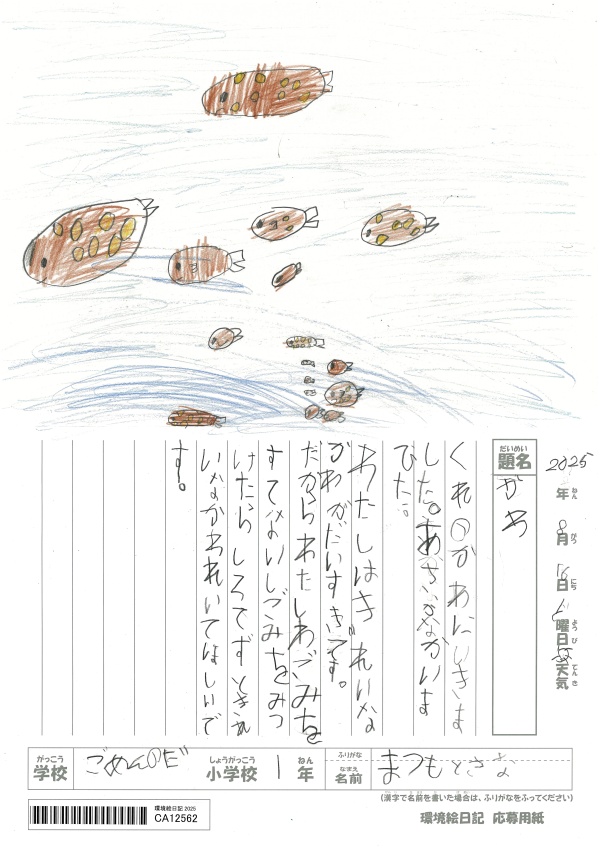 2025年 8月 日 曜日 天気
ねん がつ にち ようび てんき
だいめい
題名 がわ
くれのかわにいきま
した。あさいかなかいま
ひた。
わたしはき゛れいな
かわがだいすきです。
だからわたしわごみを
すてないしごみをみつ
けたら しろてず
いなかわれいてほしいで
す。
がっこう
学校 ごめんのだ
しょうがっこう
小学校 1 ねん
年
ふりがな
なまえ
名前 まつもとさな
(漢字で名前を書いた場合は、ふりがなをふってください)
環境絵日記 2025
CA12562
環境絵日記 応募用紙